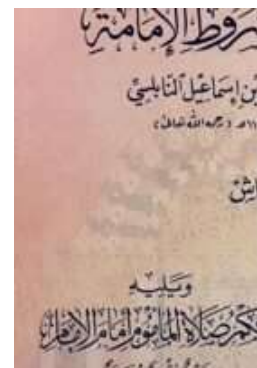 شروط الإمامة
بن إسماعيل النابلسي
رحمه الله تعالى
ويليه
حكم صلاة المأموم أمام الإمام